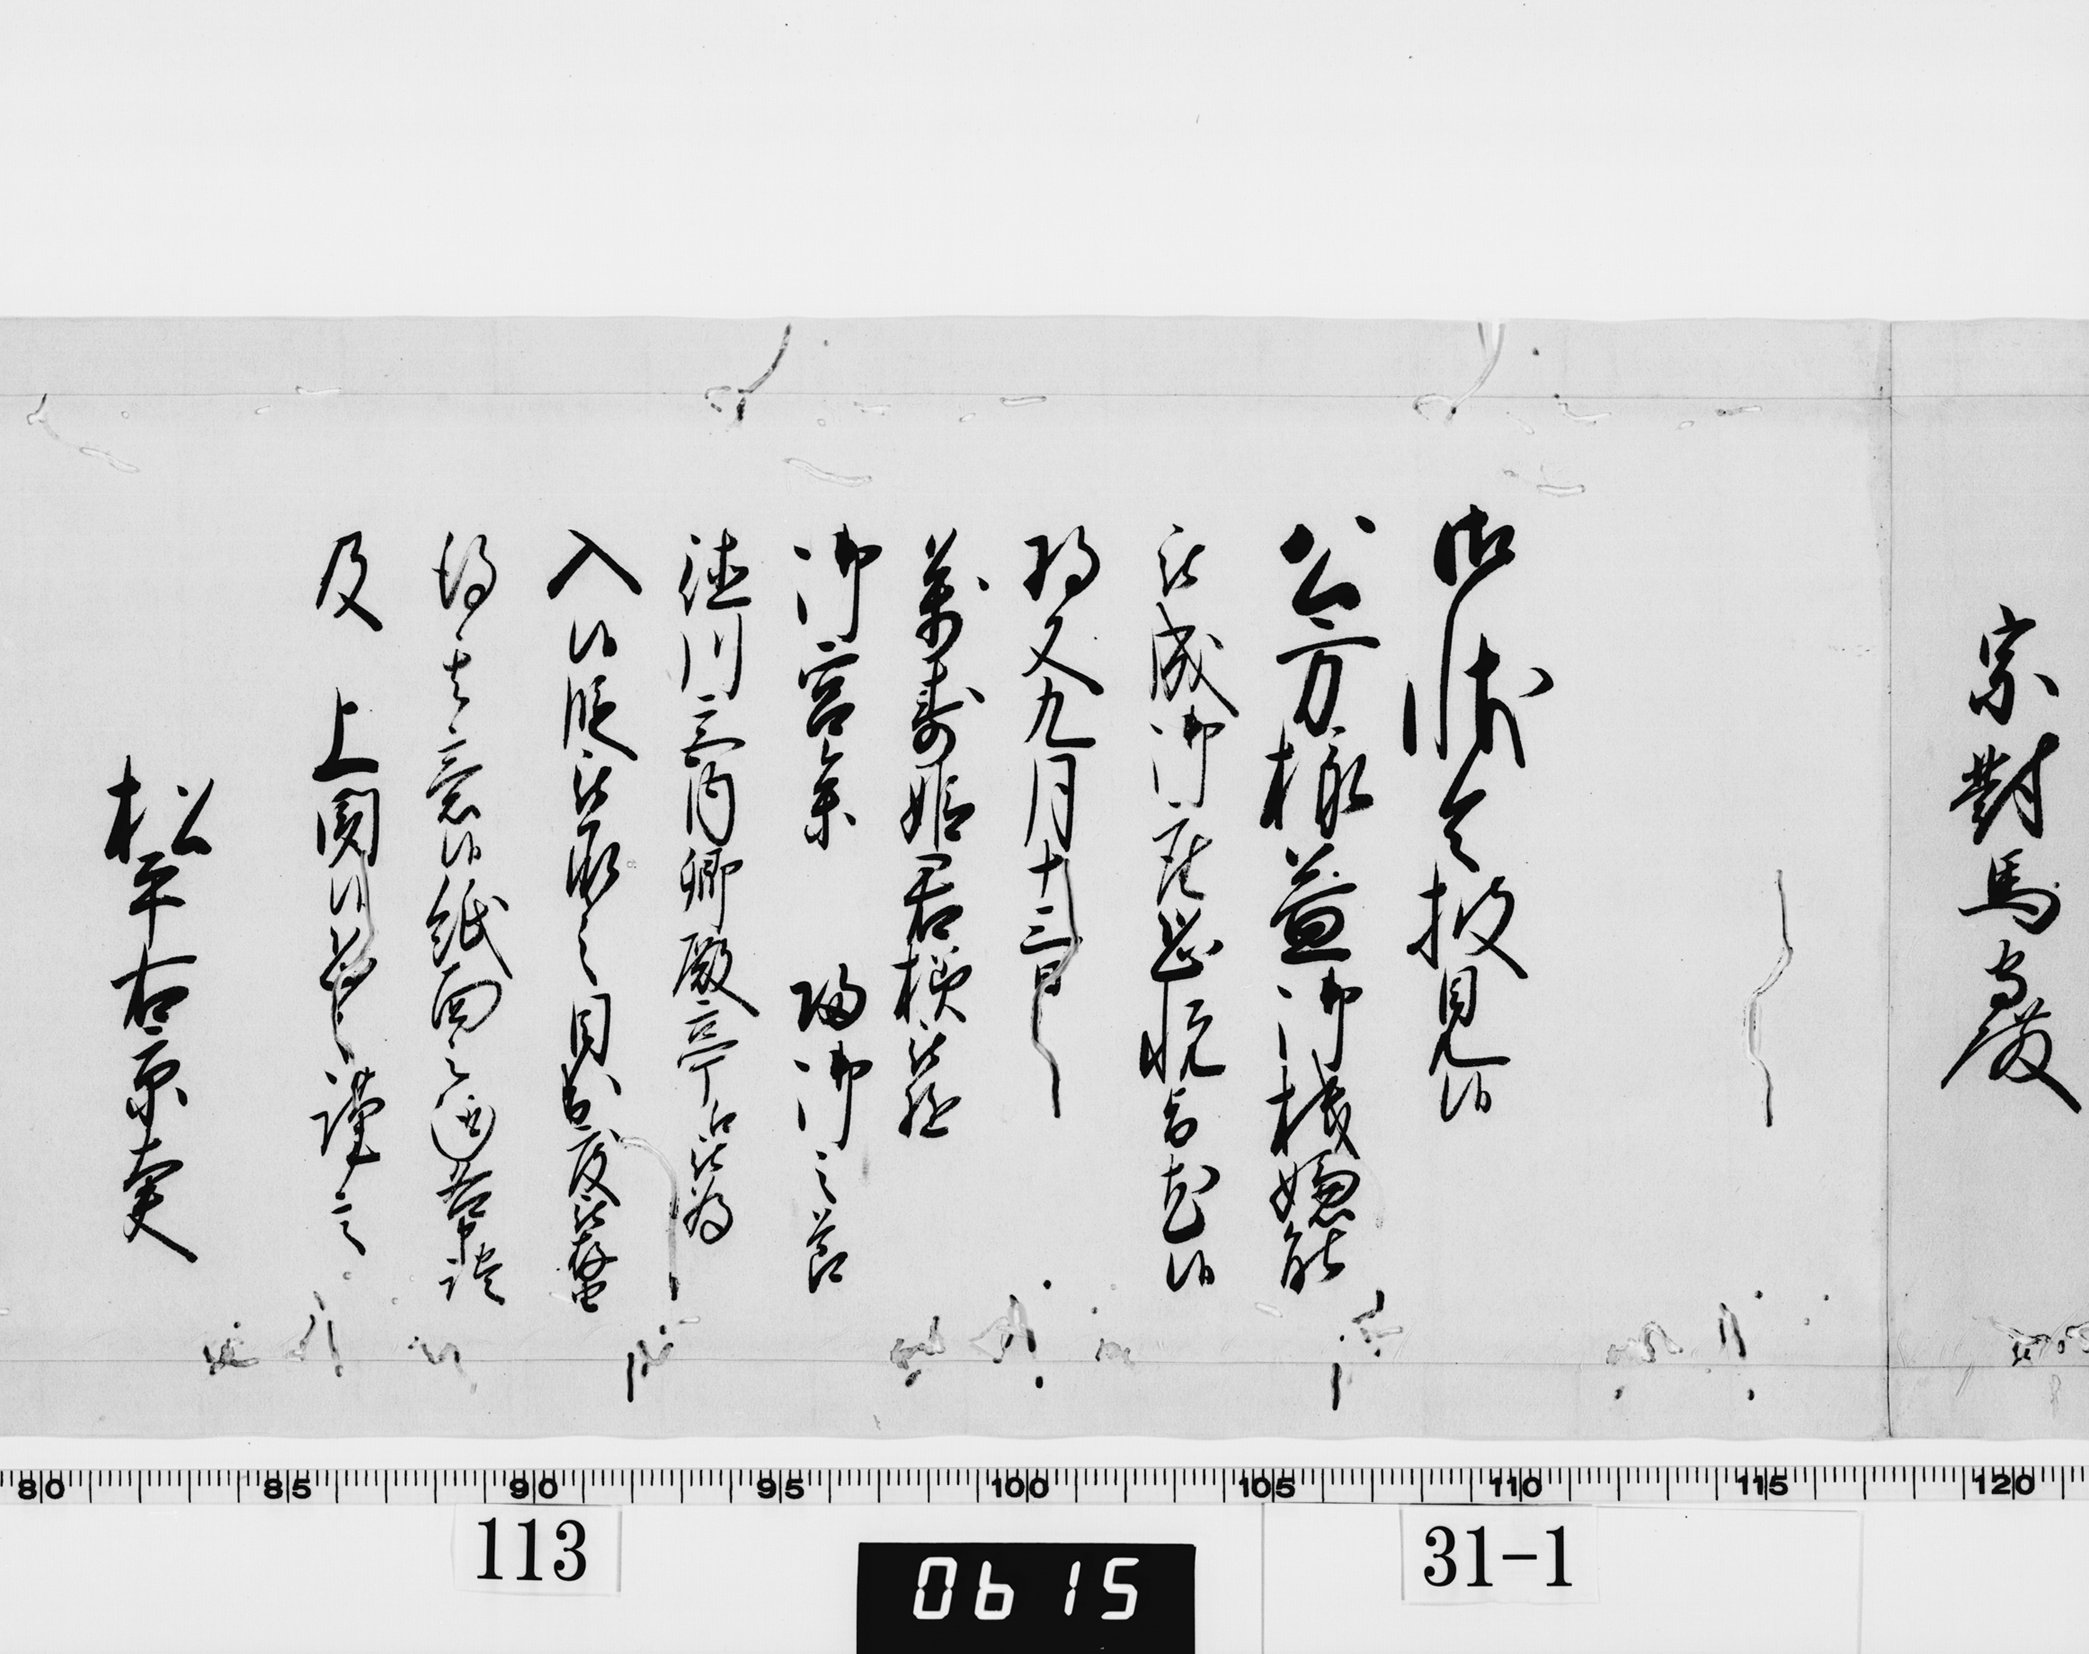 宗對馬守殿
御状令披見候
公方様益御機嫌能
被成御座恐悦旨尤候
將又九月十三日
萬壽姫君様被遊
御宮参 歸御之節
徳川宮内卿殿亭江被為
入候段被承之目出度被存
得其意候紙面之通各申談
及 上聞候恐々謹言
松平右京大夫
80 85 90 95 100 105 110 115 120
113 0615 31-1